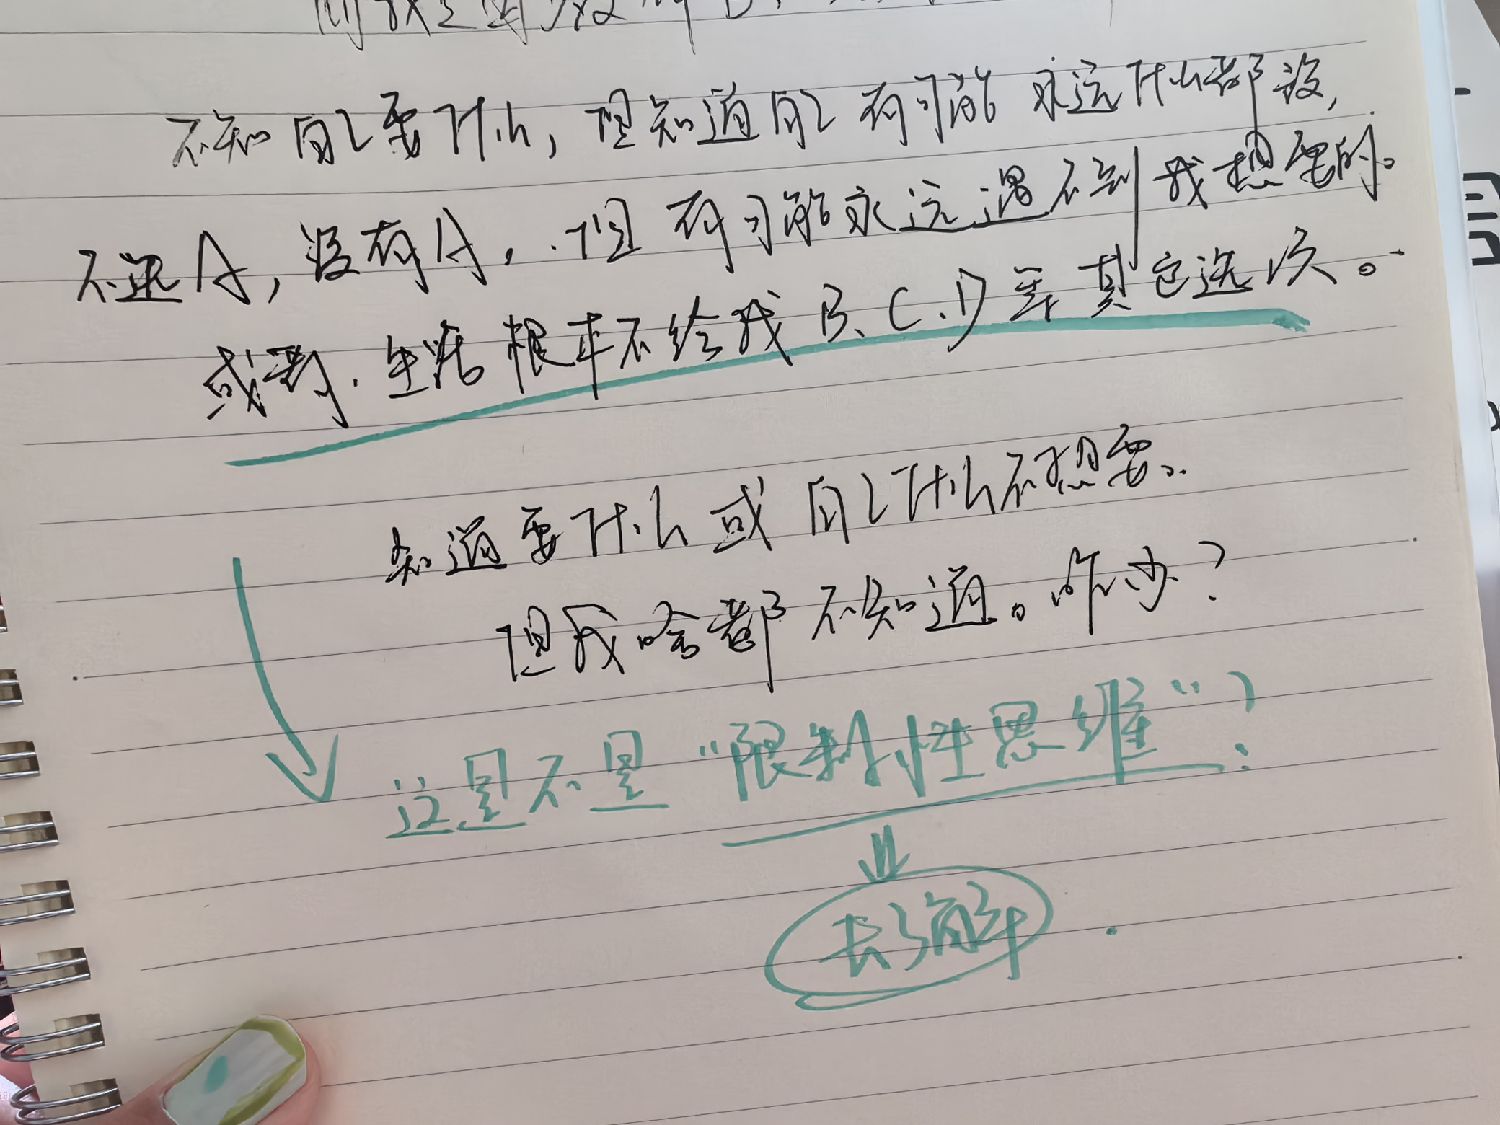 不知自己要什么，但知道自己有可能永远什么都没，
不选A，没有A，但有可能永远遇不到我想要的。
或者．生活根本不给我B、C、D等其它选次。
知道要什么或自己什么不想要。
但我啥都不知道。咋办？
这是不是“限制性思维”？
去了解